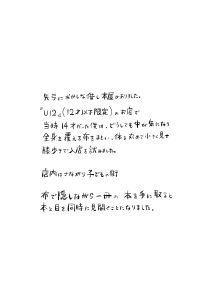 矢弓におかしな貸し本屋がありました。
『U12』(12才以下限定)のお店で
当時14才だった僕は、どうしても中が気になり
全身を覆える布をまとい、体を丸めて小さく見せ
膝歩きで入店を試みました。
店内はさながら子どもの街
布で隠しながら一冊の本を手に取ると
本と目を同時に見開くことになりました。